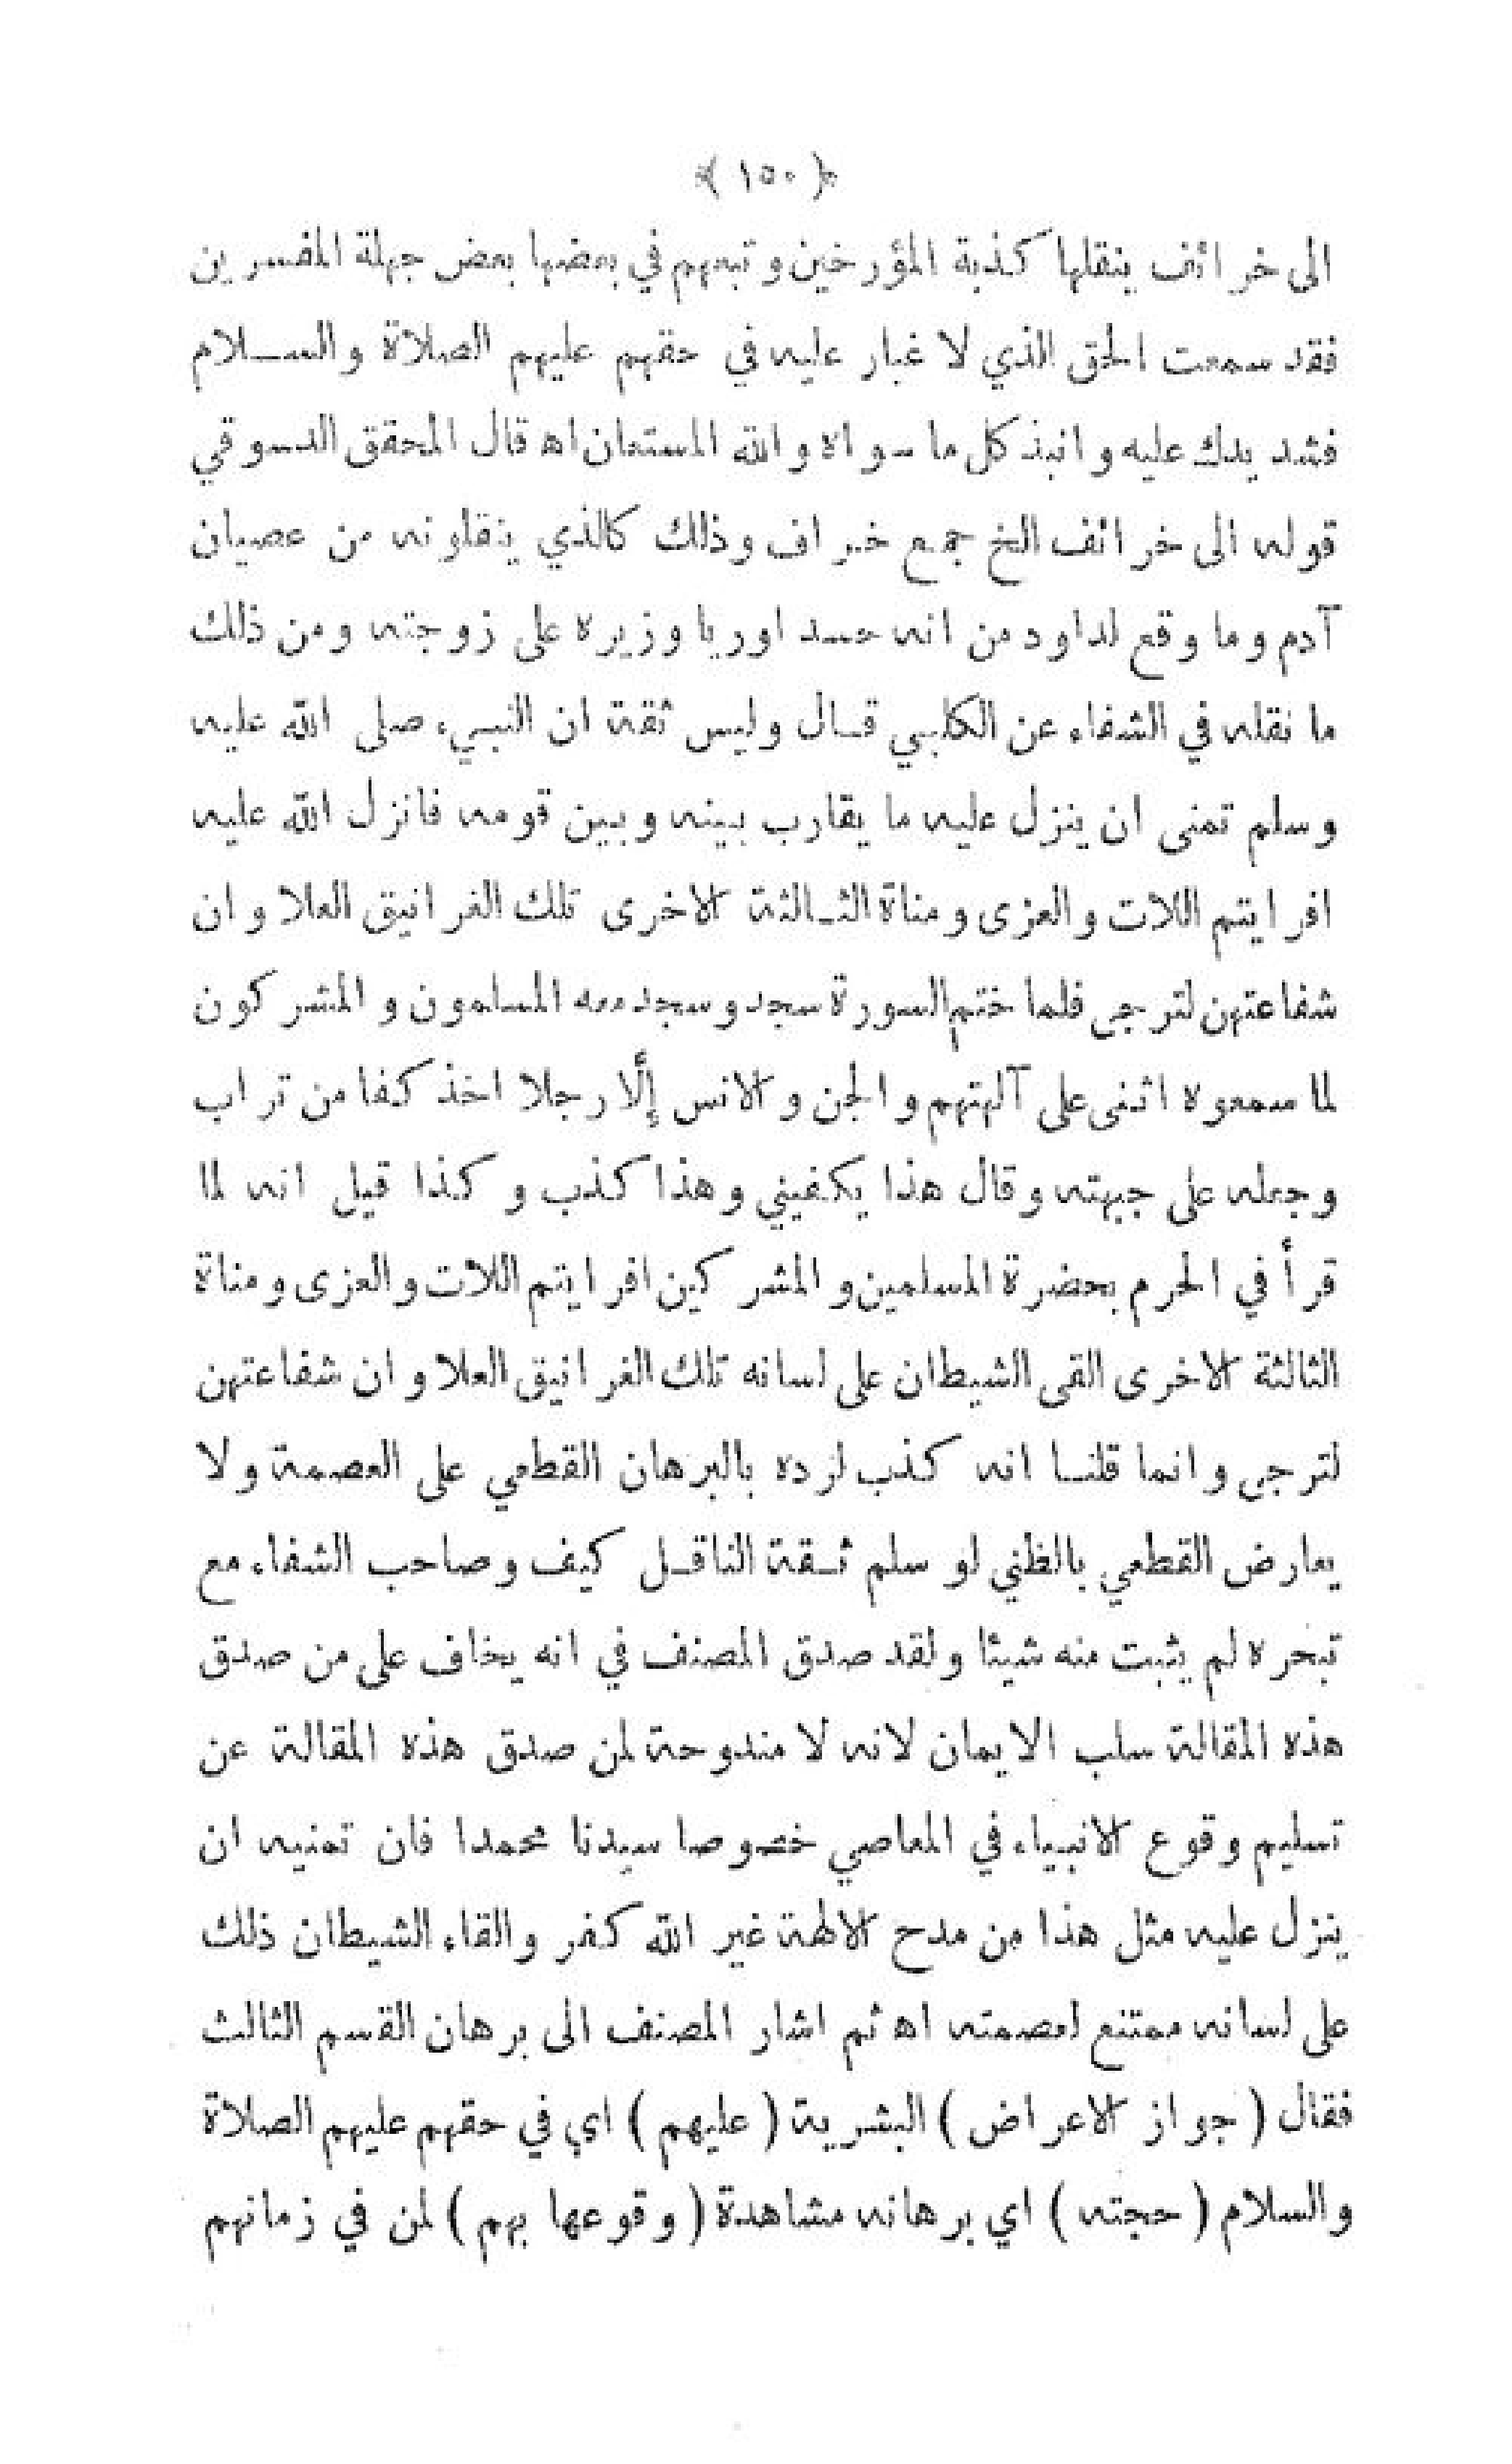 ﴿ ١٥٠ ﴾
الى خرائف ينقلها كذبة المؤرخين وتبعهم في بعضها بعض جهلة المفسرين
فقد سمعت الحق الذي لا غبار عليه في حقهم عليهم الصلاة والسـلام
فشد يدك عليه وانبذ كل ما سواه والله المستعان اه قال المحقق الدسوقي
قوله الى خرائف الخ جمع خراف وذلك كالذي ينقلونه من عصيان
آدم وما وقع لداود من انه حسد اوريا وزيره على زوجته ومن ذلك
ما نقله في الشفاء عن الكلبي قـال وليس ثقة ان النبيء صلى الله عليه
وسلم تمنى ان ينزل عليه ما يقارب بينه وبين قومه فانزل الله عليه
افرايتم اللات والعزى ومناة الثـالثة الاخرى تلك الغرانيق العلا وان
شفاعتهن لترجى فلما ختم السورة سجد وسجد معه المسلمون والمشركون
لما سمعوه اثنى على آلهتهم والجن والانس إلّا رجلا اخذ كفا من تراب
وجعله على جبهته وقال هذا يكفيني وهذا كذب وكذا قيل انه لما
قرأ في الحرم بحضرة المسلمين والمشركين افرايتم اللات والعزى ومناة
الثالثة الاخرى القى الشيطان على لسانه تلك الغرانيق العلا وان شفاعتهن
لترجى وانما قلنـا انه كذب لرده بالبرهان القطعي على العصمة ولا
يعارض القطعي بالظني لو سلم ثـقة الناقـل كيف وصاحب الشفاء مع
تبحره لم يثبت منه شيئا ولقد صدق المصنف في انه يخاف على من صدق
هذه المقالة سلب الايمان لانه لا مندوحة لمن صدق هذه المقالة عن
تسليم وقوع الانبياء في المعاصي خصوصا سيدنا محمدا فان تمنيه ان
ينزل عليه مثل هذا من مدح الالهة غير الله كفر والقاء الشيطان ذلك
على لسانه ممتنع لعصمته اه ثم اشار المصنف الى برهان القسم الثالث
فقال ( جواز الاعراض ) البشرية ( عليهم ) اي في حقهم عليهم الصلاة
والسلام ( حجته ) اي برهانه مشاهدة ( وقوعها بهم ) لمن في زمانهم